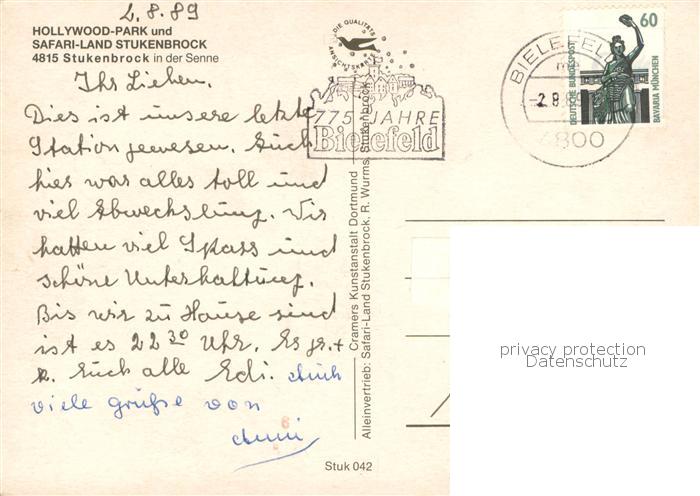 2.8.89
HOLLYWOOD-PARK und
SAFARI-LAND STUKENBROCK
4815 Stukenbrock in der Senne
Ihr Lieben.
Dies ist unsere letzte
Station gewesen. Auch
hier war alles toll und
viel Abwechslung. Wir
hatten viel Spass und
schöne Unterhaltung.
Bis wir zu Hause sind
ist es 22 30 Uhr. Es gr.+
k. Euch alle Edi. Auch
viele grüße von
Anni
DIE QUALITÄTS
ANSICHTSKARTE
775 JAHRE
Bielefeld
BIELEFELD
-2.8.
4800
60
DEUTSCHE BUNDESPOST
BAVARIA MÜNCHEN
Cramers Kunstanstalt Dortmund
Alleinvertrieb: Safari-Land Stukenbrock, R. Wurms, Stukenbrock
Stuk 042
privacy protection
Datenschutz